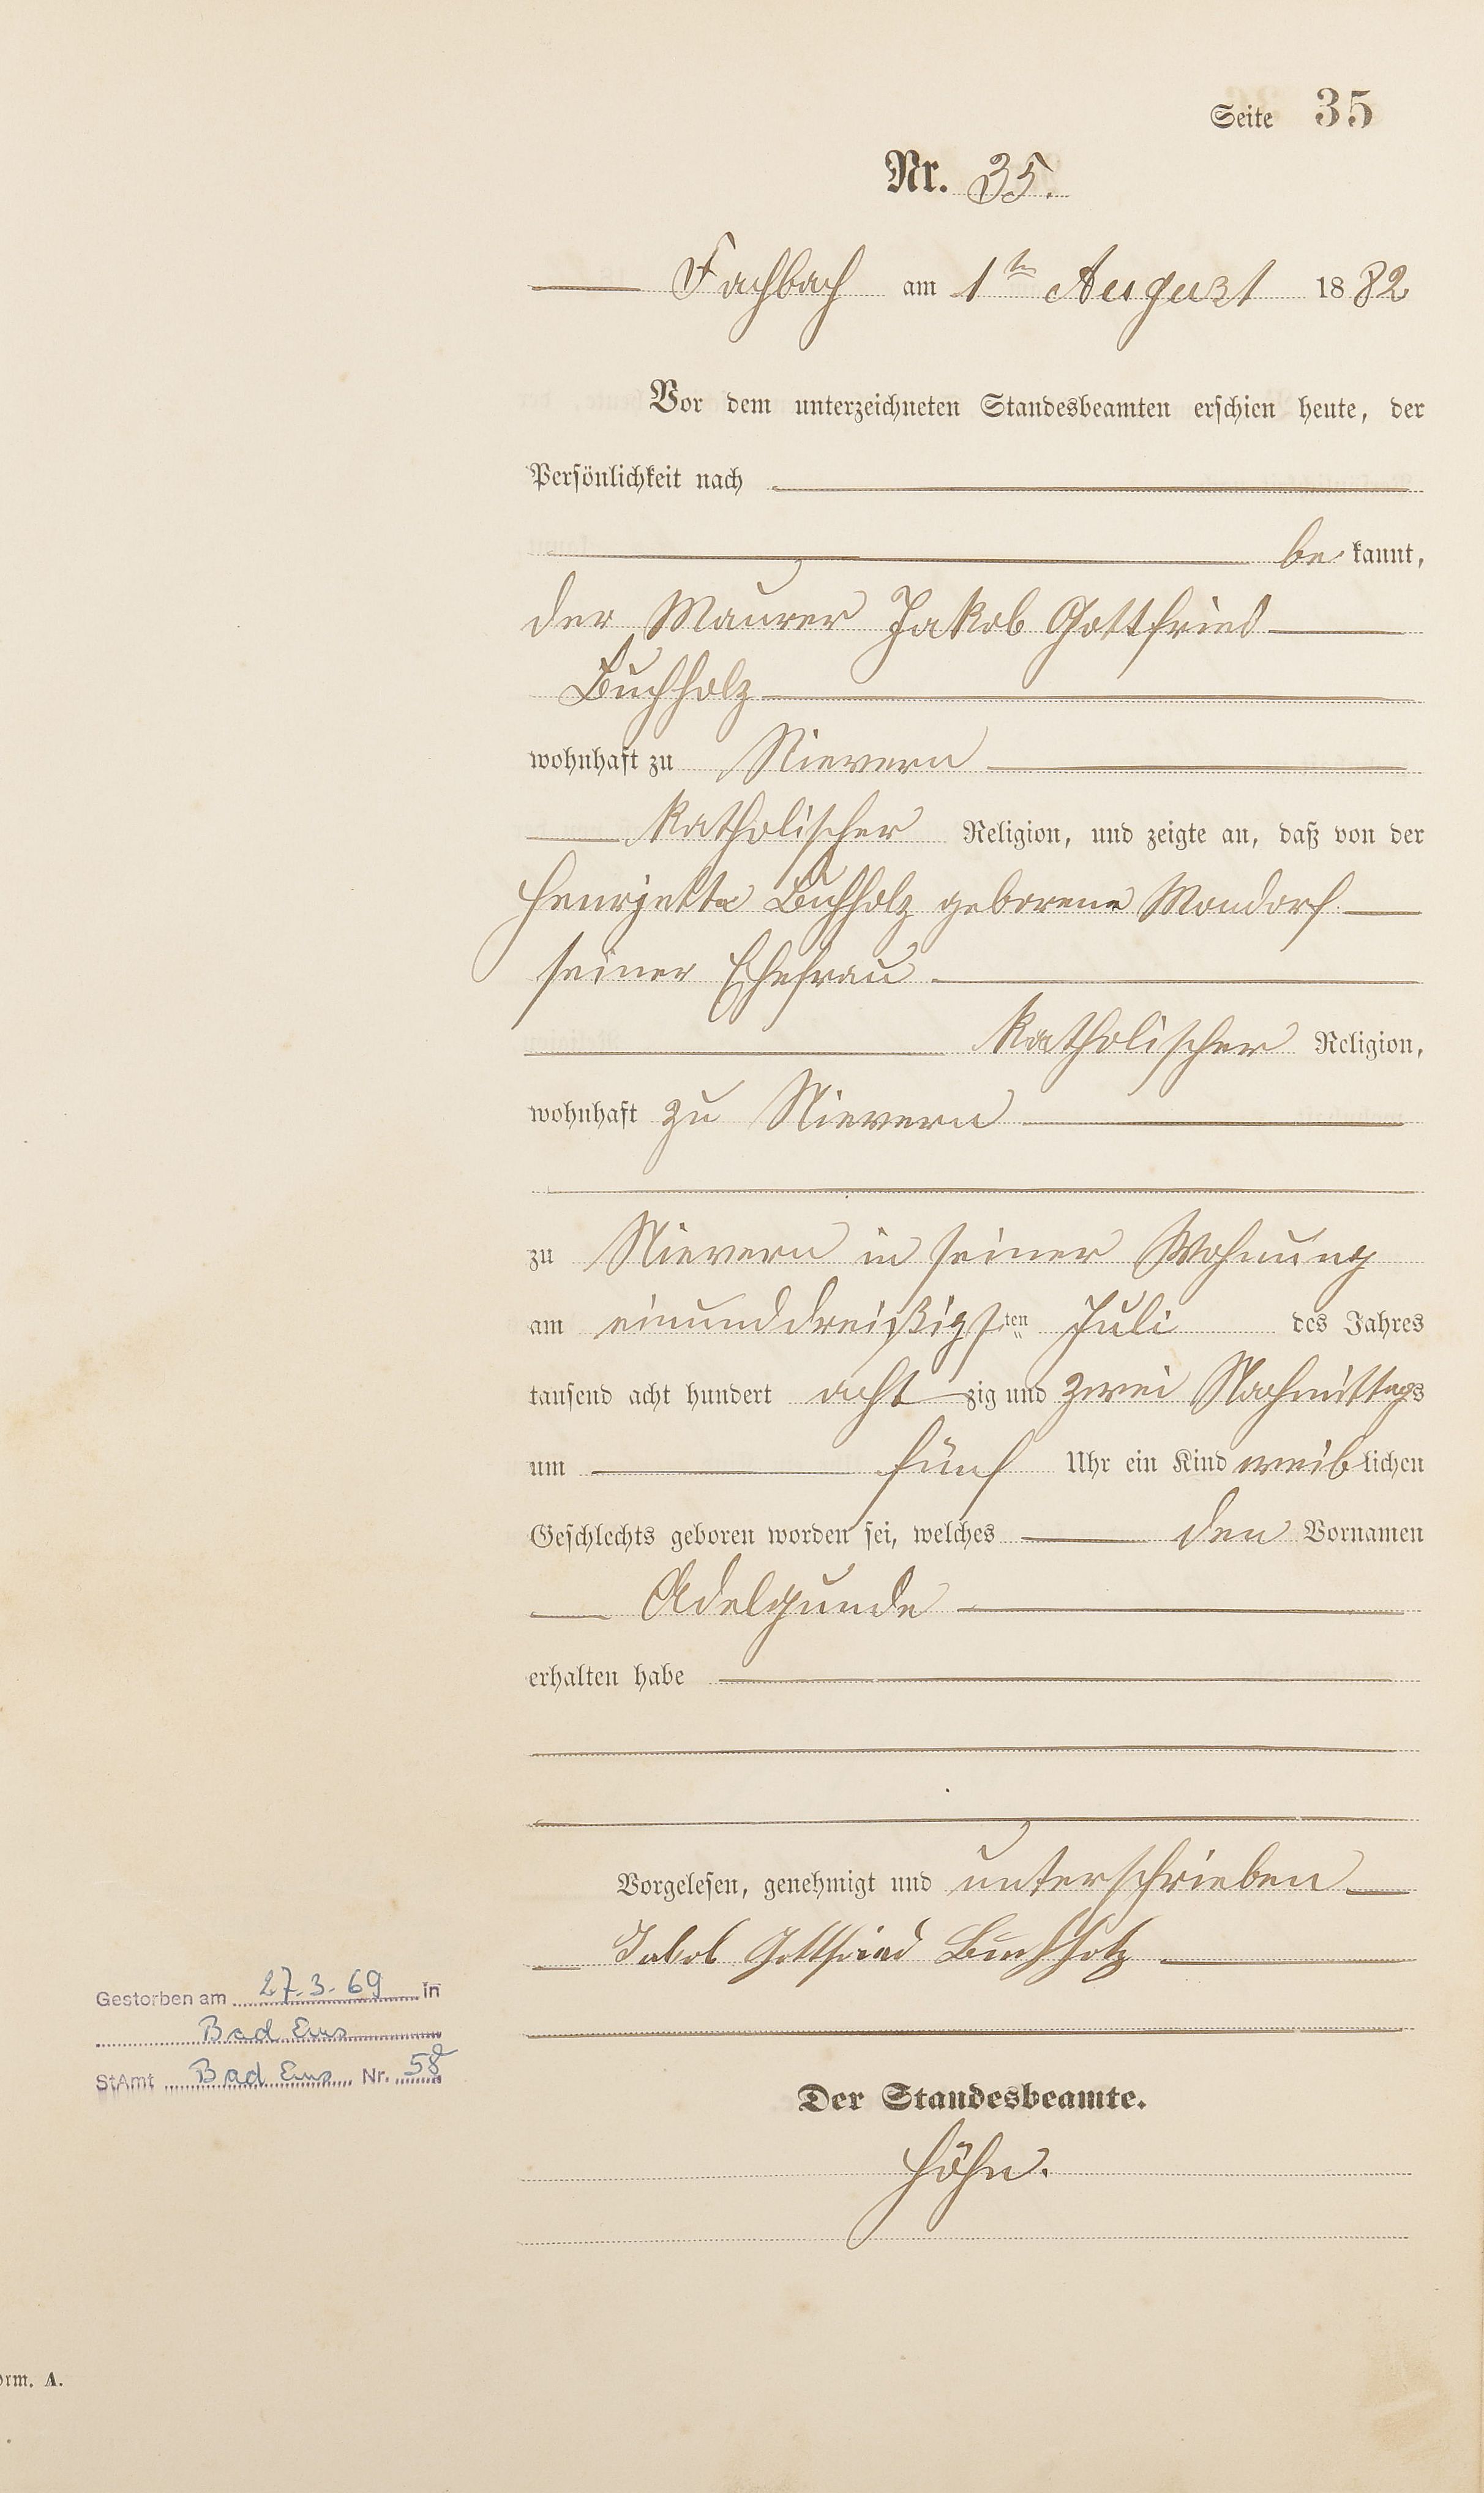 Seite 35
Nr. 35.
Fachbach am 1ten August 1882
Vor dem unterzeichneten Standesbeamten erschien heute, der
Persönlichkeit nach
bekannt,
der Maurer Jakob Gottfried
Buchholz
wohnhaft zu Nievern
katholischer Religion, und zeigte an, daß von der
Henrjetta Buchholz geborene Mondorf
seiner Ehefrau
katholischer Religion,
wohnhaft zu Nievern
zu Nievern in seiner Wohnung
am einunddreißigsten Juli des Jahres
tausend acht hundert achtzig und zwei Nachmittags
um fünf Uhr ein Kind weiblichen
Geschlechts geboren worden sei, welches den Vornamen
Adelgunde
erhalten habe
Vorgelesen, genehmigt und unterschrieben
Jakob Gottfried Buchholz
Der Standesbeamte.
Höhn.
Gestorben am 27.3.69 in
Bad Ems
StAmt Bad Ems Nr. 58
orm. A.